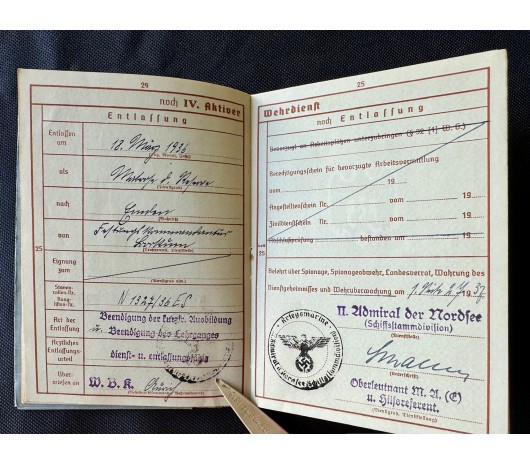 24
noch IV. Aktiver
Entlassung
Entlassen am
12. März 1936
(Tag, Monat, Jahr)
als
Matrose d. Reserve
(Dienstgrad)
nach
Emden
von
Festungskommandantur
Borkum
Eignung zum
(Dienstgrad usw.)
25
Stammrollen-Nr.
Ranglisten-Nr.
N 1327/36 ES
Art der Entlassung
Beendigung der kurzfr. Ausbildung
u. Beendigung des Lehrganges
Ärztliches Entlassungsurteil
dienst- u. entlassungsfähig
Überwiesen an
W. B. K.
25
Wehrdienst
noch Entlassung
Bevorzugt an Arbeitsplätzen unterzubringen (§ 32 [1] W. G.)
Berechtigungsschein für bevorzugte Arbeitsvermittlung
vom 19
Angestelltenschein Nr. vom 19
Zivildienstschein Nr. vom 19
Abschlußprüfung bestanden am 19
25
Belehrt über Spionage, Spionageabwehr, Landesverrat, Wahrung des
Dienstgeheimnisses und Wehrüberwachung am
19 37.
II. Admiral der Nordsee
(Schiffsstammdivision)
(Dienststelle)
Kriegsmarine
(Unterschrift)
Oberleutnant M. A. (E)
u. Hilfsreferent.
(Dienstgrad, Dienststellung)